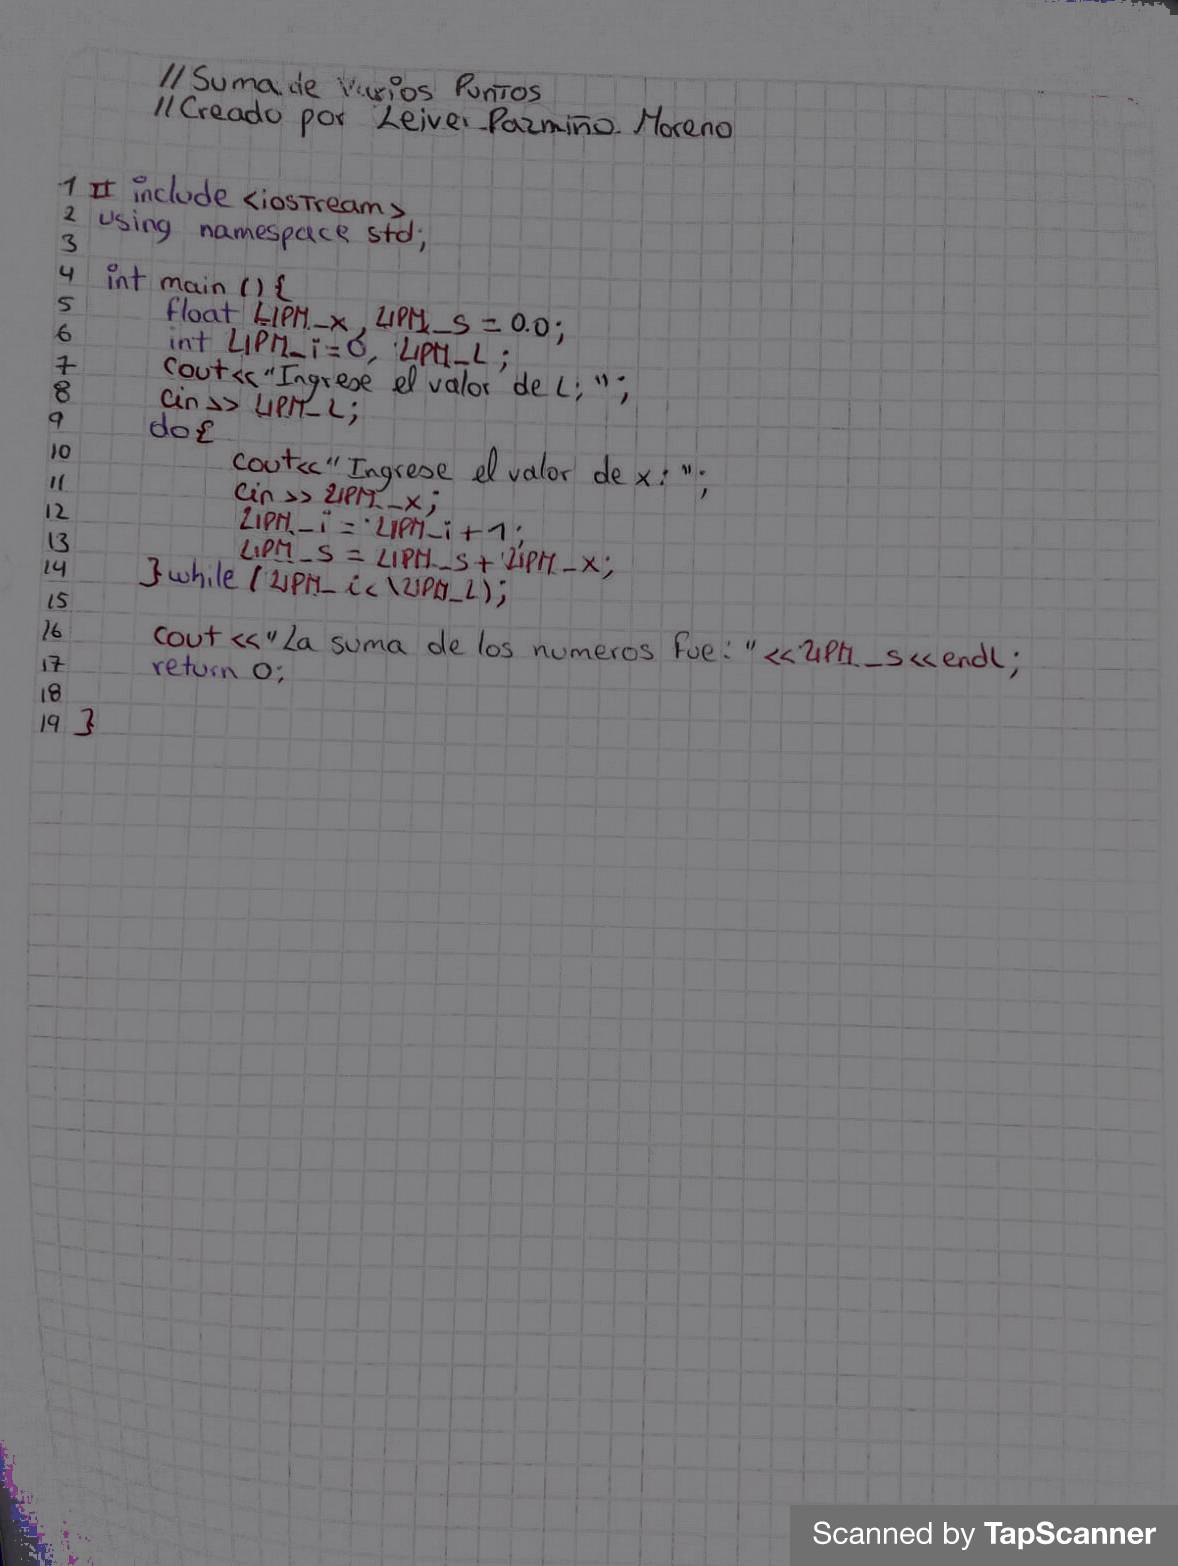 //Suma de varios Puntos
//Creado por Leiver Pazmiño Moreno
1 # include <iostream>
2 using namespace std;
3
4 int main () {
5 float LIPM_x, LIPM_s = 0.0;
6 int LIPM_i=0, LIPM_L;
7 cout<<"Ingrese el valor de L: ";
8 cin>> LIPM_L;
9 do{
10 cout<<"Ingrese el valor de x: ";
11 cin >> LIPM_x;
12 LIPM_i = LIPM_i + 1;
13 LIPM_s = LIPM_s + LIPM_x;
14 }while (LIPM_i<\LIPM_L);
15
16 cout <<"La suma de los numeros fue: "<<LIPM_s<<endl;
17 return 0;
18
19 }
Scanned by TapScanner